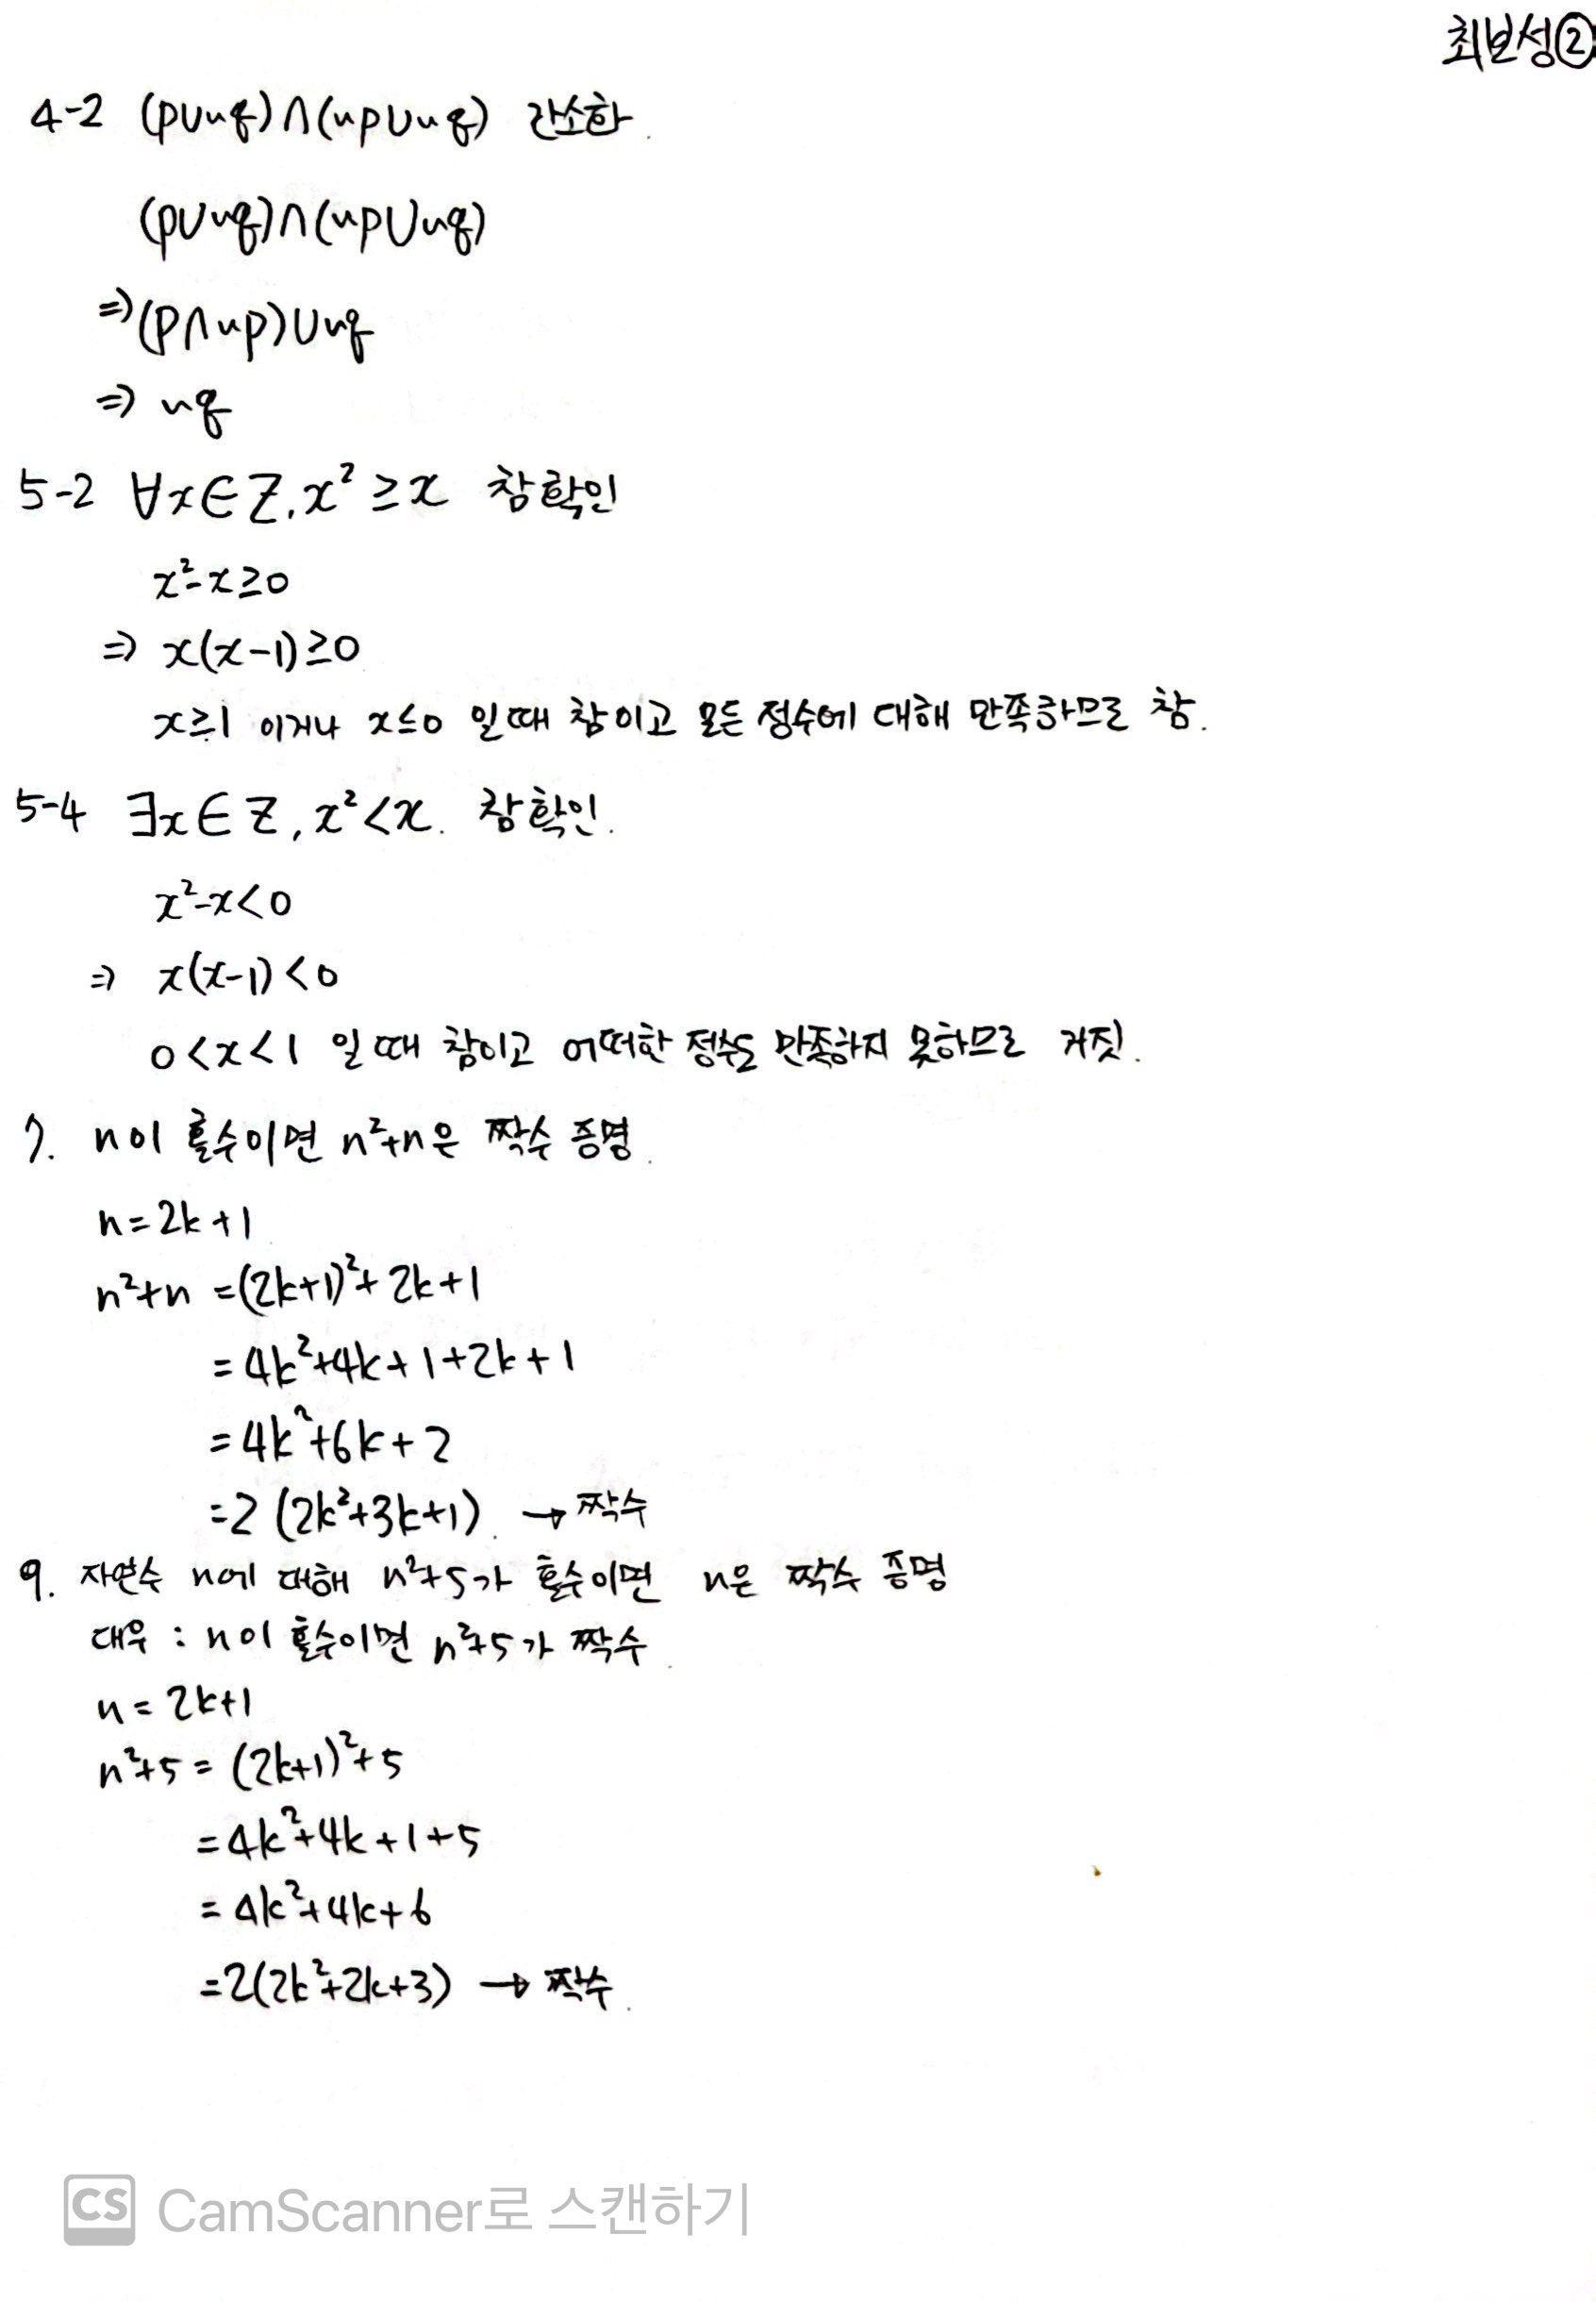 최보성②
4-2 (p∪~q)∩(~p∪~q) 간소화.
(p∪~q)∩(~p∪~q)
⇒(p∩~p)∪~q
⇒ ~q
5-2 ∀x∈Z, x² ≥ x 참확인
x²-x≥0
⇒ x(x-1)≥0
x≥1 이거나 x≤0 일때 참이고 모든 정수에 대해 만족하므로 참.
5-4 ∃x∈Z, x²<x. 참확인.
x²-x<0
⇒ x(x-1)<0
0<x<1 일때 참이고 어떠한 정수도 만족하지 못하므로 거짓.
7. n이 홀수이면 n²+n은 짝수 증명.
n=2k+1
n²+n =(2k+1)²+2k+1
=4k²+4k+1+2k+1
=4k²+6k+2
=2(2k²+3k+1). → 짝수
9. 자연수 n에 대해 n²+5가 홀수이면 n은 짝수 증명
대우 : n이 홀수이면 n²+5가 짝수.
n=2k+1
n²+5= (2k+1)²+5
=4k²+4k+1+5
=4k²+4k+6
=2(2k²+2k+3) → 짝수.
CS CamScanner로 스캔하기